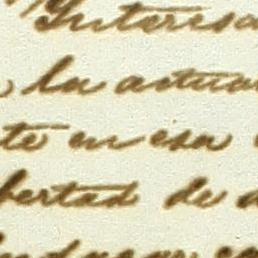 Interesa
la actua
te en esa
bertad de a